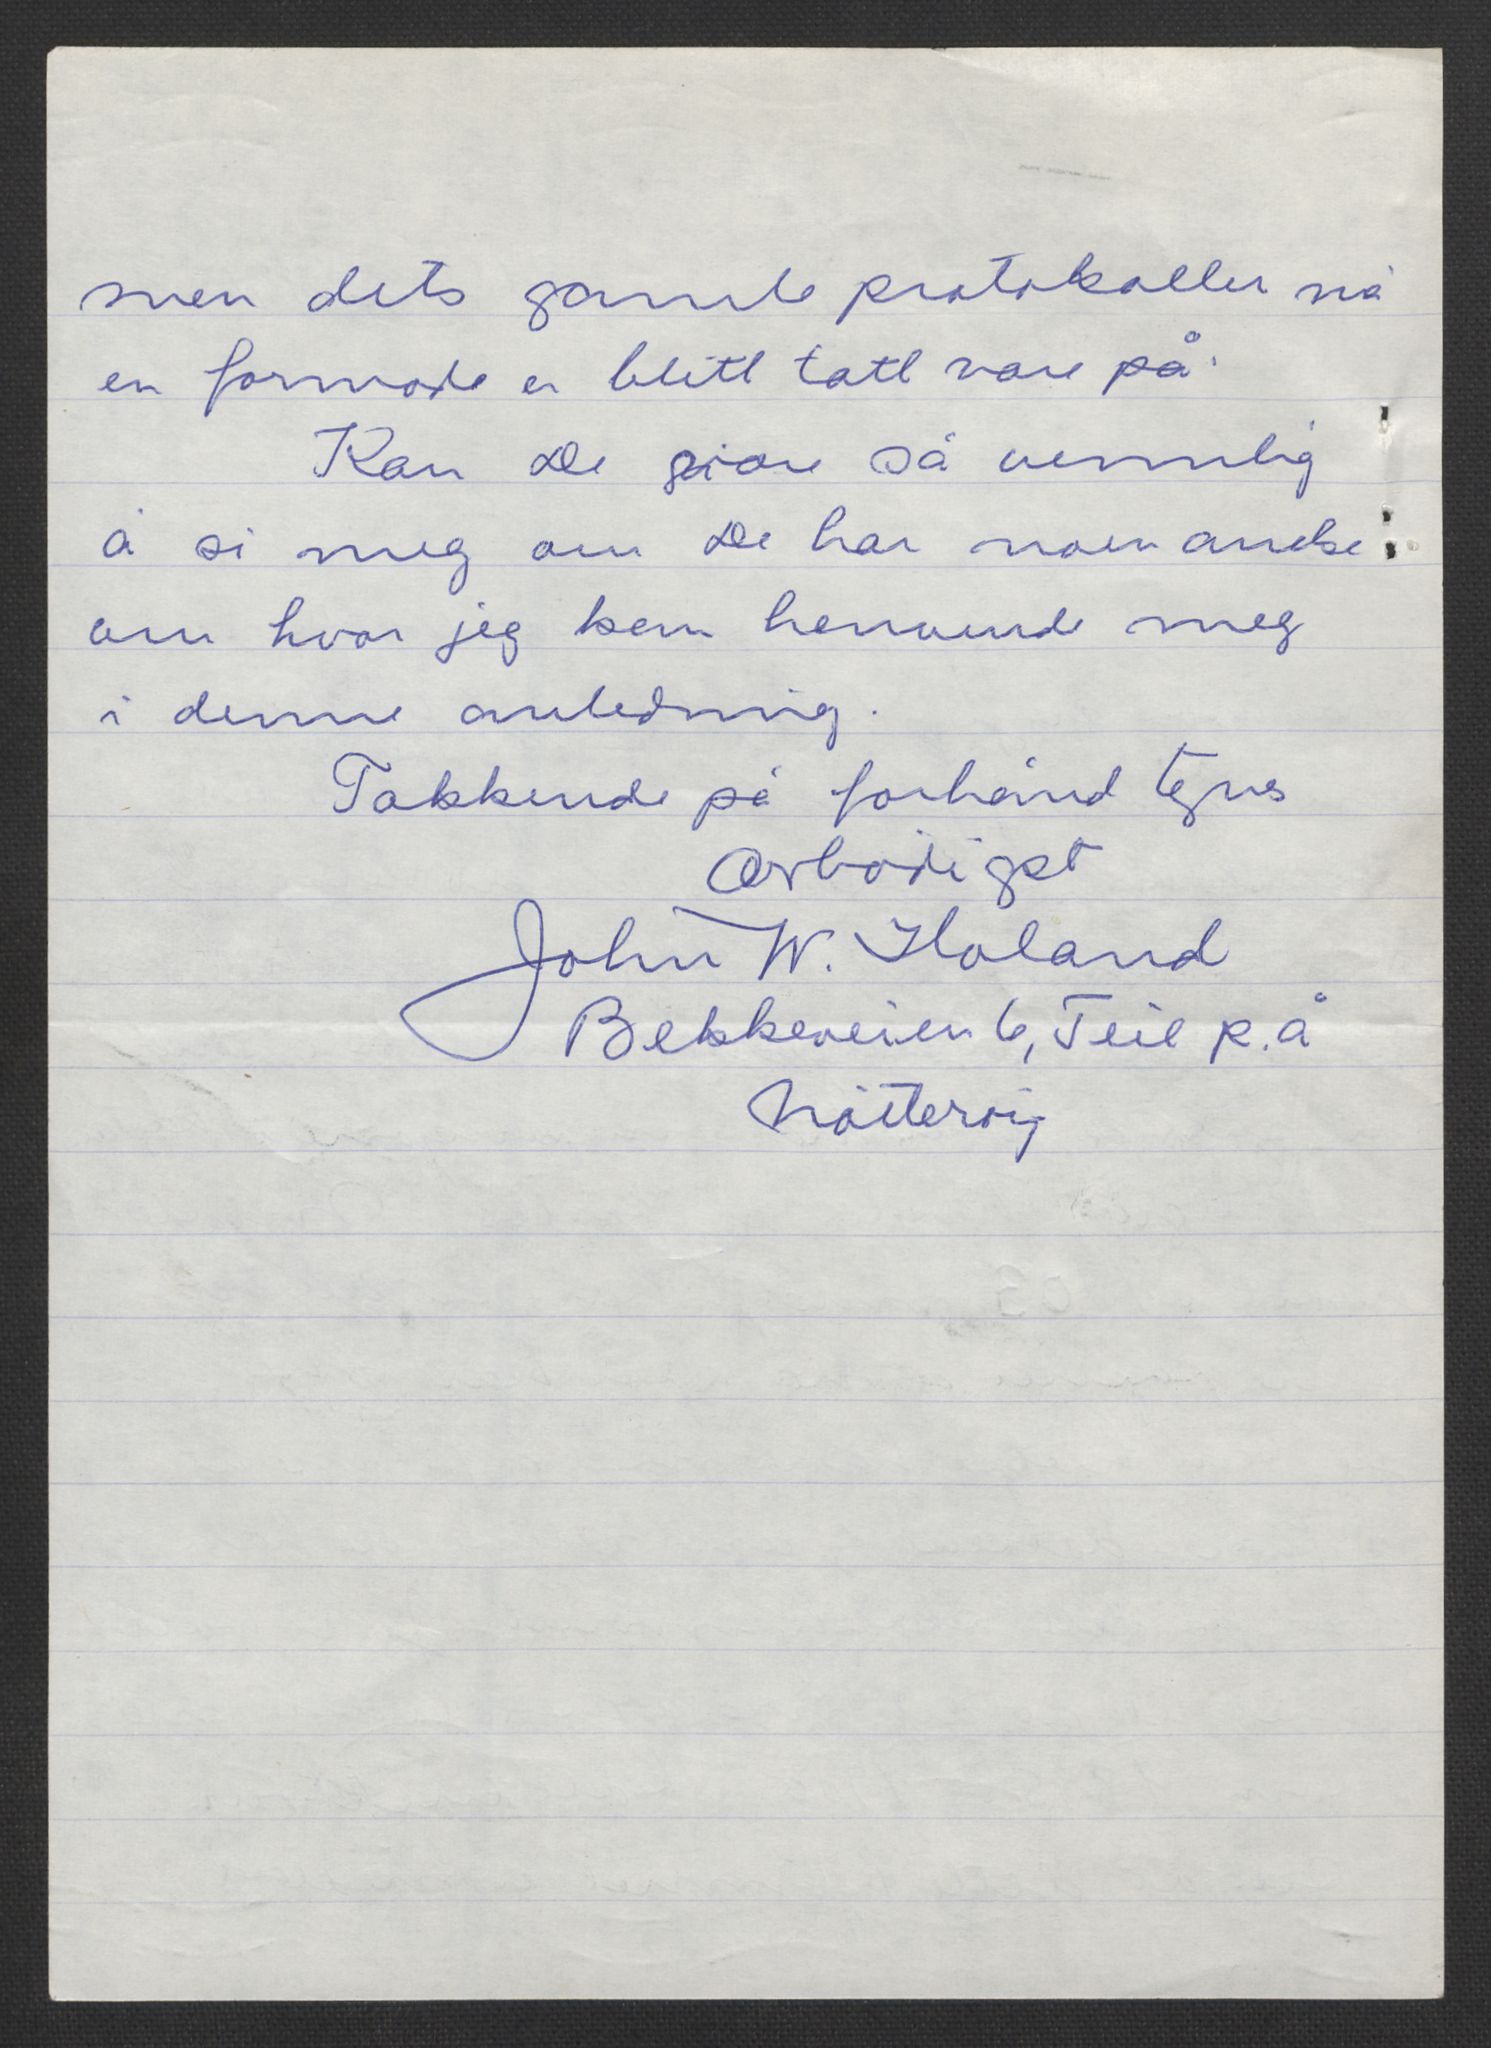 men dets gamle protokoller må
en formode er blitt tatt vare på.
Kan De gjøre så vennlig
å si meg om De har noen anelse
om hvor jeg kan henvende meg
i denne anledning.
Takkende på forhånd tegnes
Ærbødigst
John W. Holand
Bekkeveien 6, Teie p.å
Nøtterøy